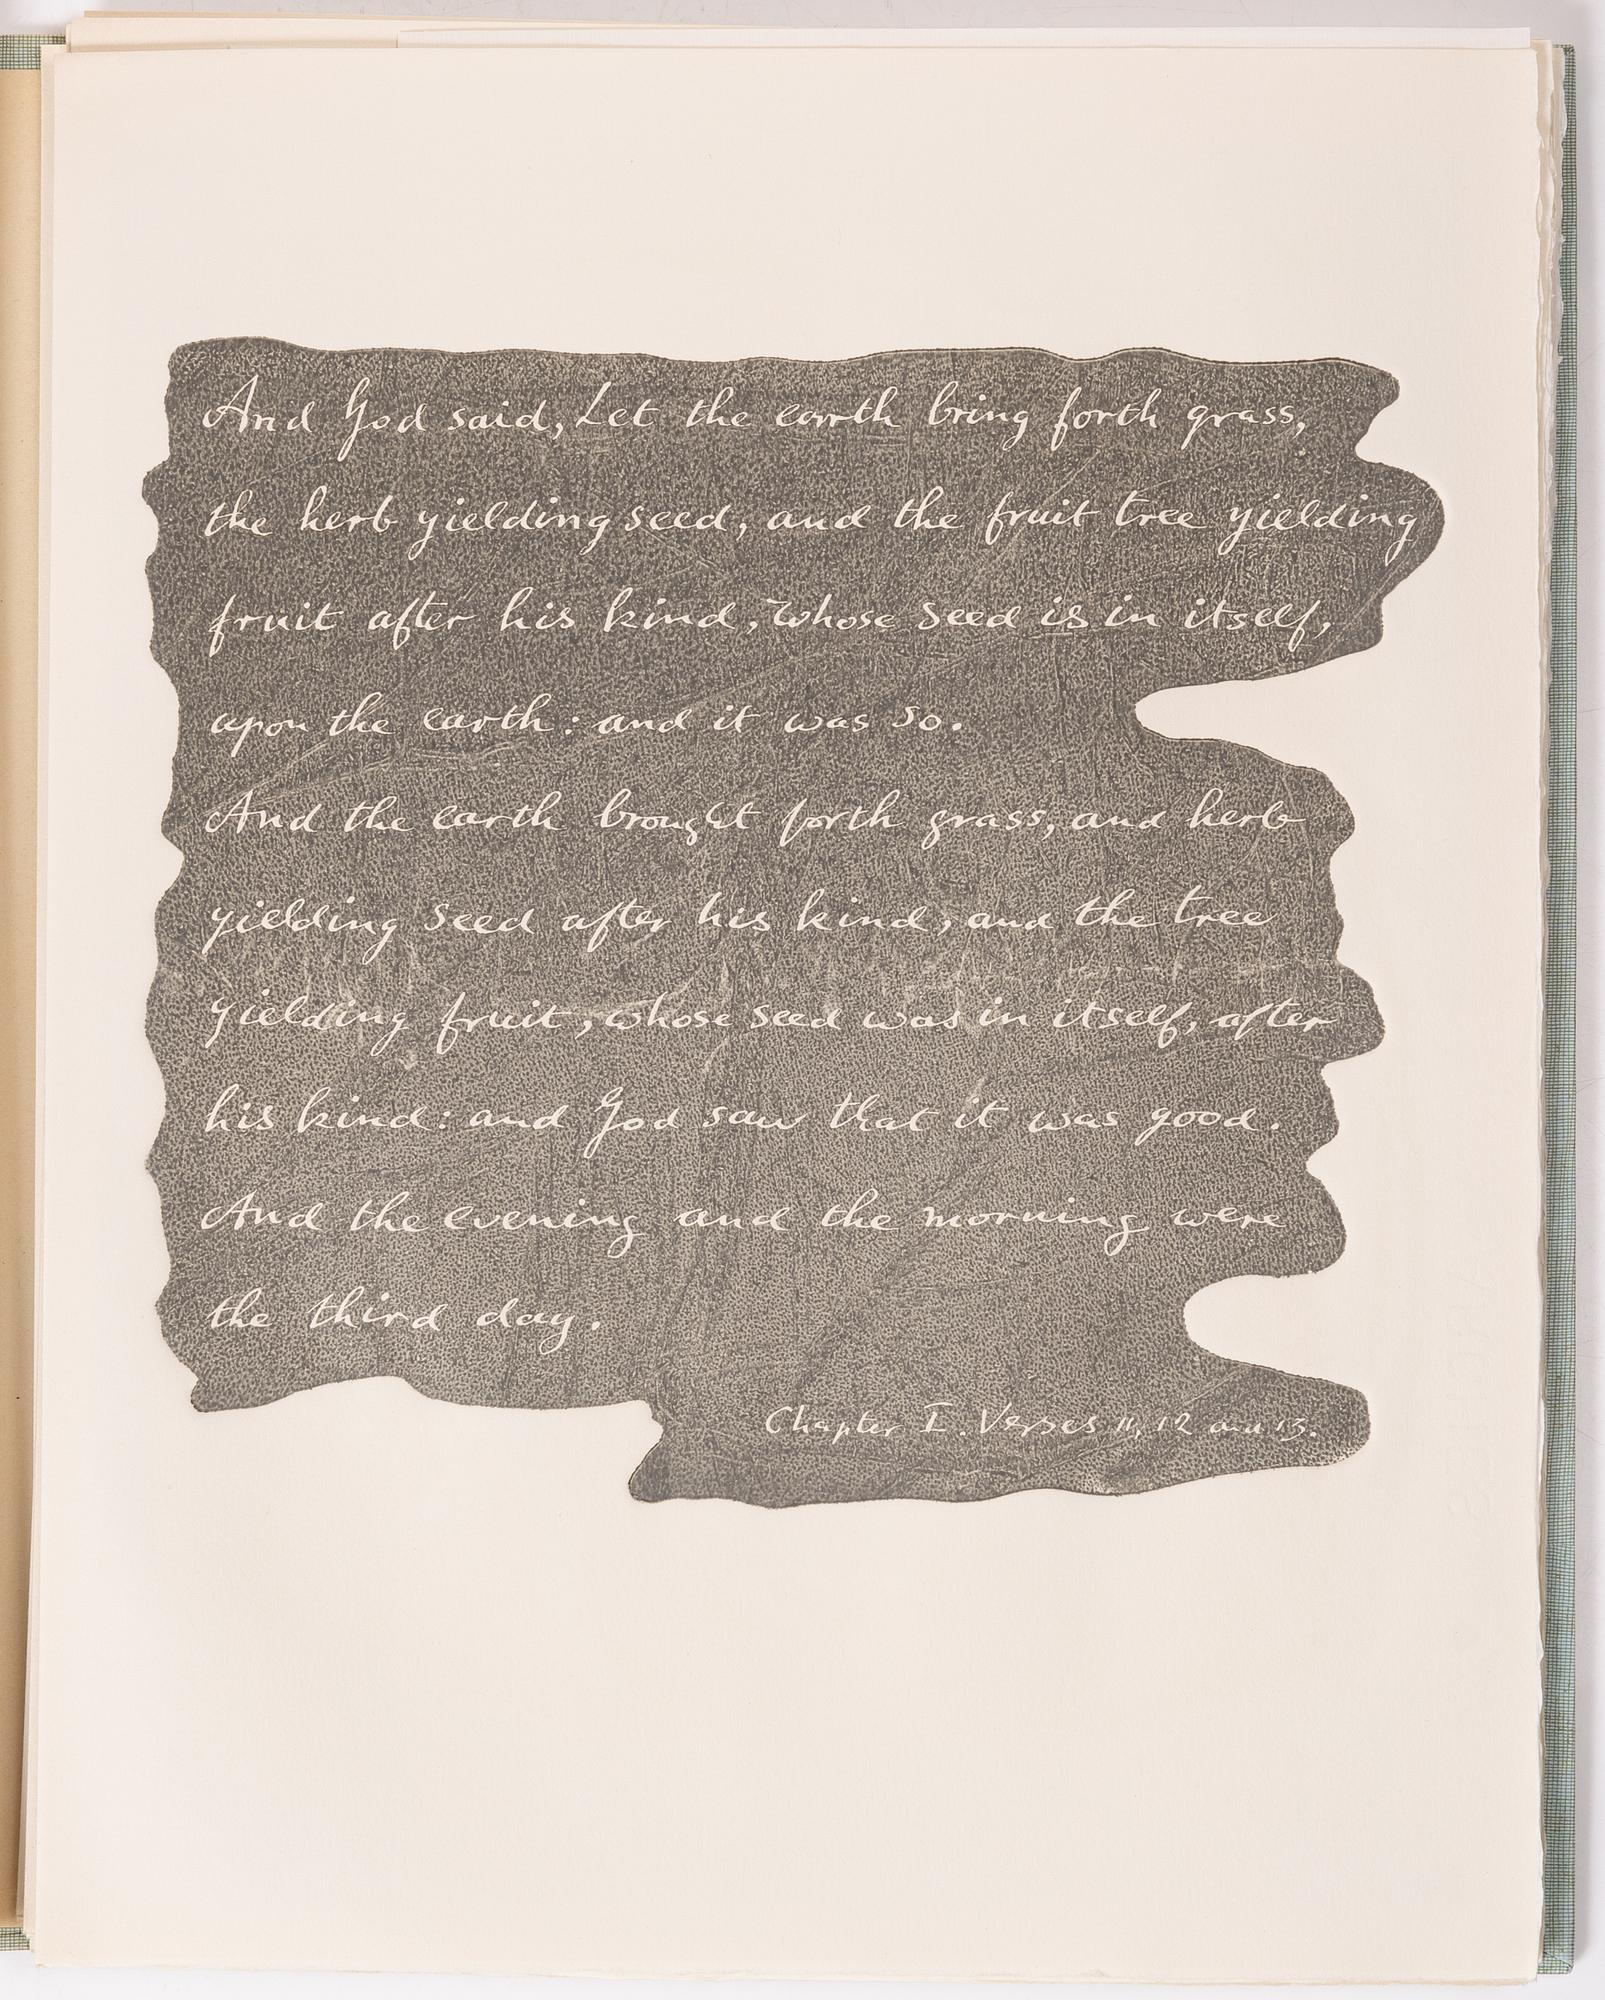 And God said, Let the earth bring forth grass,
the herb yielding seed, and the fruit tree yielding
fruit after his kind, whose seed is in itself,
upon the earth: and it was so.
And the earth brought forth grass, and herb
yielding seed after his kind, and the tree
yielding fruit, whose seed was in itself, after
his kind: and God saw that it was good.
And the evening and the morning were
the third day.
Chapter I. Verses 11, 12 and 13.